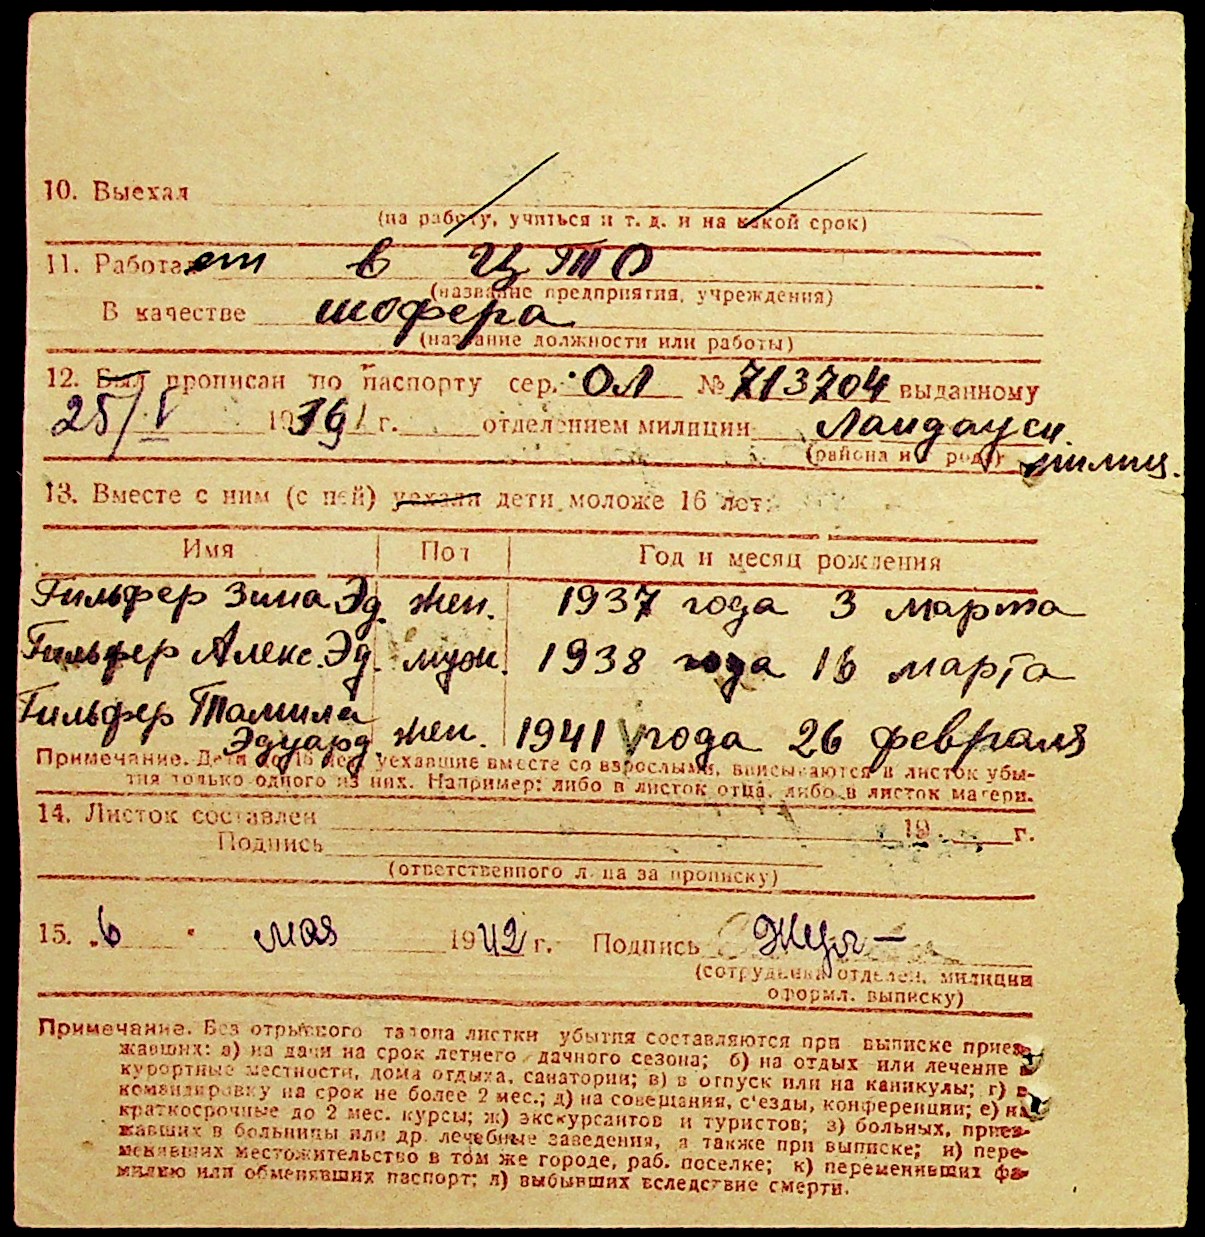 10. Выехал
(на работу, учиться и т. д. и на какой срок)
11. Работает в ЦТО
(название предприятия, учреждения)
В качестве шофера
(название должности или работы)
12. Был прописан по паспорту сер. ОЛ № 713704 выданному
25/V 1939 г. отделением милиции Ландауск.
(района и города) милиц.
13. Вместе с ним (с ней) уехали дети моложе 16 лет:
Имя Пол Год и месяц рождения
Гильфер Зина Эд. жен. 1937 года 3 марта
Гильфер Алекс. Эд. муж. 1938 года 16 марта
Гильфер Тамила
Эдуард. жен. 1941 года 26 февраля
Примечание. Дети до 16 лет, уехавшие вместе со взрослыми, вписываются в листок убы-
тия только одного из них. Например: либо в листок отца, либо в листок матери.
14. Листок составлен 19 г.
Подпись
(ответственного лица за прописку)
15. „6 " мая 1942 г. Подпись
(сотрудника отделен. милиции
оформл. выписку)
Примечание. Без отрывного талона листки убытия составляются при выписке приез-
жавших: а) на дачи на срок летнего дачного сезона; б) на отдых или лечение в
курортные местности, дома отдыха, санатории; в) в отпуск или на каникулы; г) в
командировку на срок не более 2 мес.; д) на совещания, с'езды, конференции; е) на
краткосрочные до 2 мес. курсы; ж) экскурсантов и туристов; з) больных, приез-
жавших в больницы или др. лечебные заведения, а также при выписке; и) пере-
менивших местожительство в том же городе, раб. поселке; к) переменивших фа-
милию или обменявших паспорт; л) выбывших вследствие смерти.